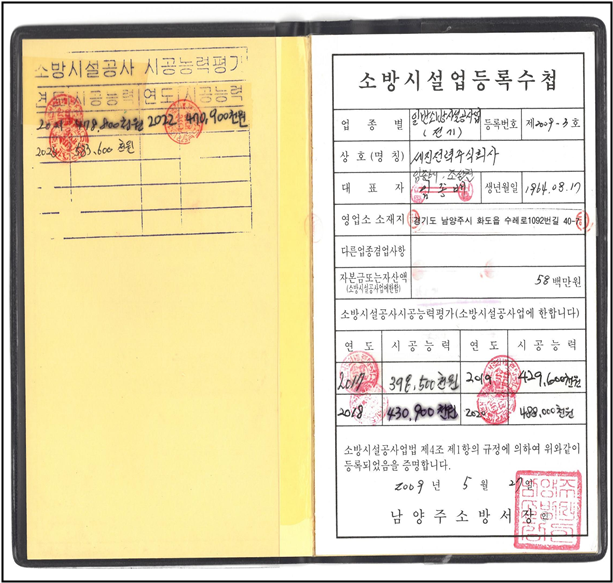 소방시설공사 시공능력평가
년도 시공능력 연도 시공능력
478,800천원 2022 470,900천원
583,600천원
소방시설업등록수첩
업종별 일반소방시설공사업 (전기) 등록번호 제2009-3호
상호(명칭) 세진전력주식회사
대표자 생년월일 1964.08.17
영업소 소재지 경기도 남양주시 화도읍 수레로1092번길 40-7
다른업종겸업사항
자본금또는자산액 58 백만원
(소방시설공사업에한함)
소방시설공사시공능력평가(소방시설공사업에 한합니다)
연도 시공능력 연도 시공능력
2017 398,500천원 2019 429,600천원
2018 430,900천원 488,000천원
소방시설공사업법 제4조 제1항의 규정에 의하여 위와같이
등록되었음을 증명합니다.
2009 년 5 월 27일
남양주소방서장